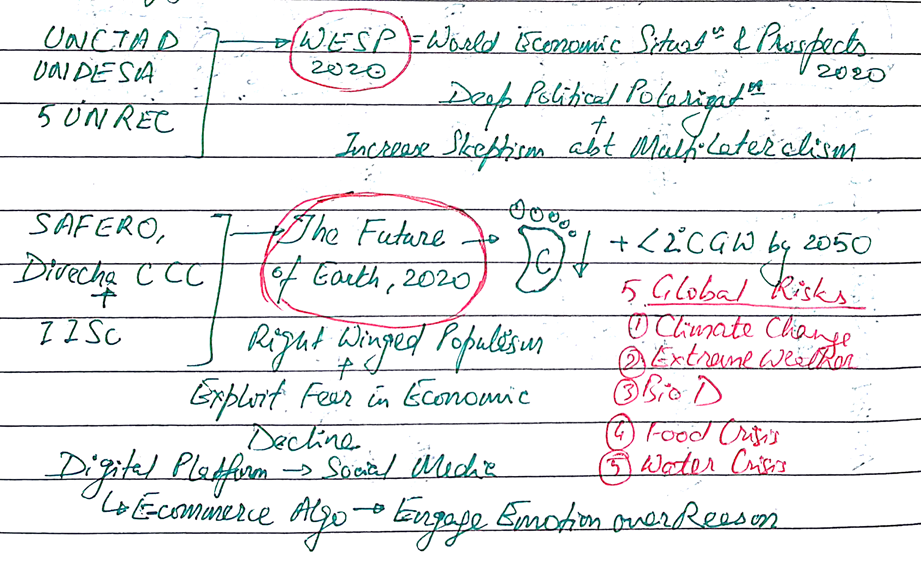 UNCTAD → WESP = World Economic Situatⁿ & Prospects
UNDESA 2020 2020
5 UNREC
Deep Political Polarizatⁿ
+
Increase Skeptism abt Multilateralism
SAFERO, → The Future → C ↓ + <2°C GW by 2050
Divecha CCC of Earth, 2020
+
IISc
Right Winged Populism
+
Exploit Fear in Economic
Decline
5 Global Risks
① Climate Change
② Extreme Weather
③ Bio D
④ Food Crisis
⑤ Water Crisis
Digital Platform → Social Media
↳ Ecommerce Algo → Engage Emotion over Reason